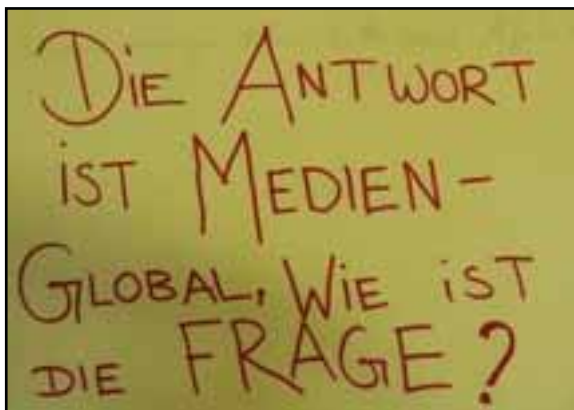 DIE ANTWORT
iST MEDIEN-
GLOBAL, WIE iST
DIE FRAGE?